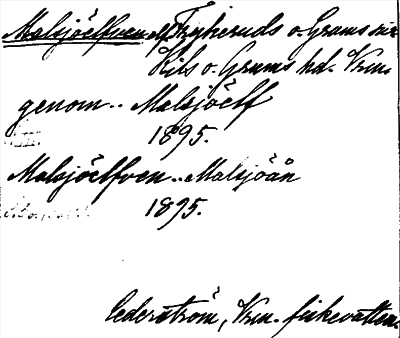 Malsjöelfven, Frykeruds o. Grums snr
Kils o. Grums hd. Vrm.
genom .. Malsjöelf
1895.
Malsjöelfven .. Malsjöån
1895.
Cederström, Vrm. fiskevatten.